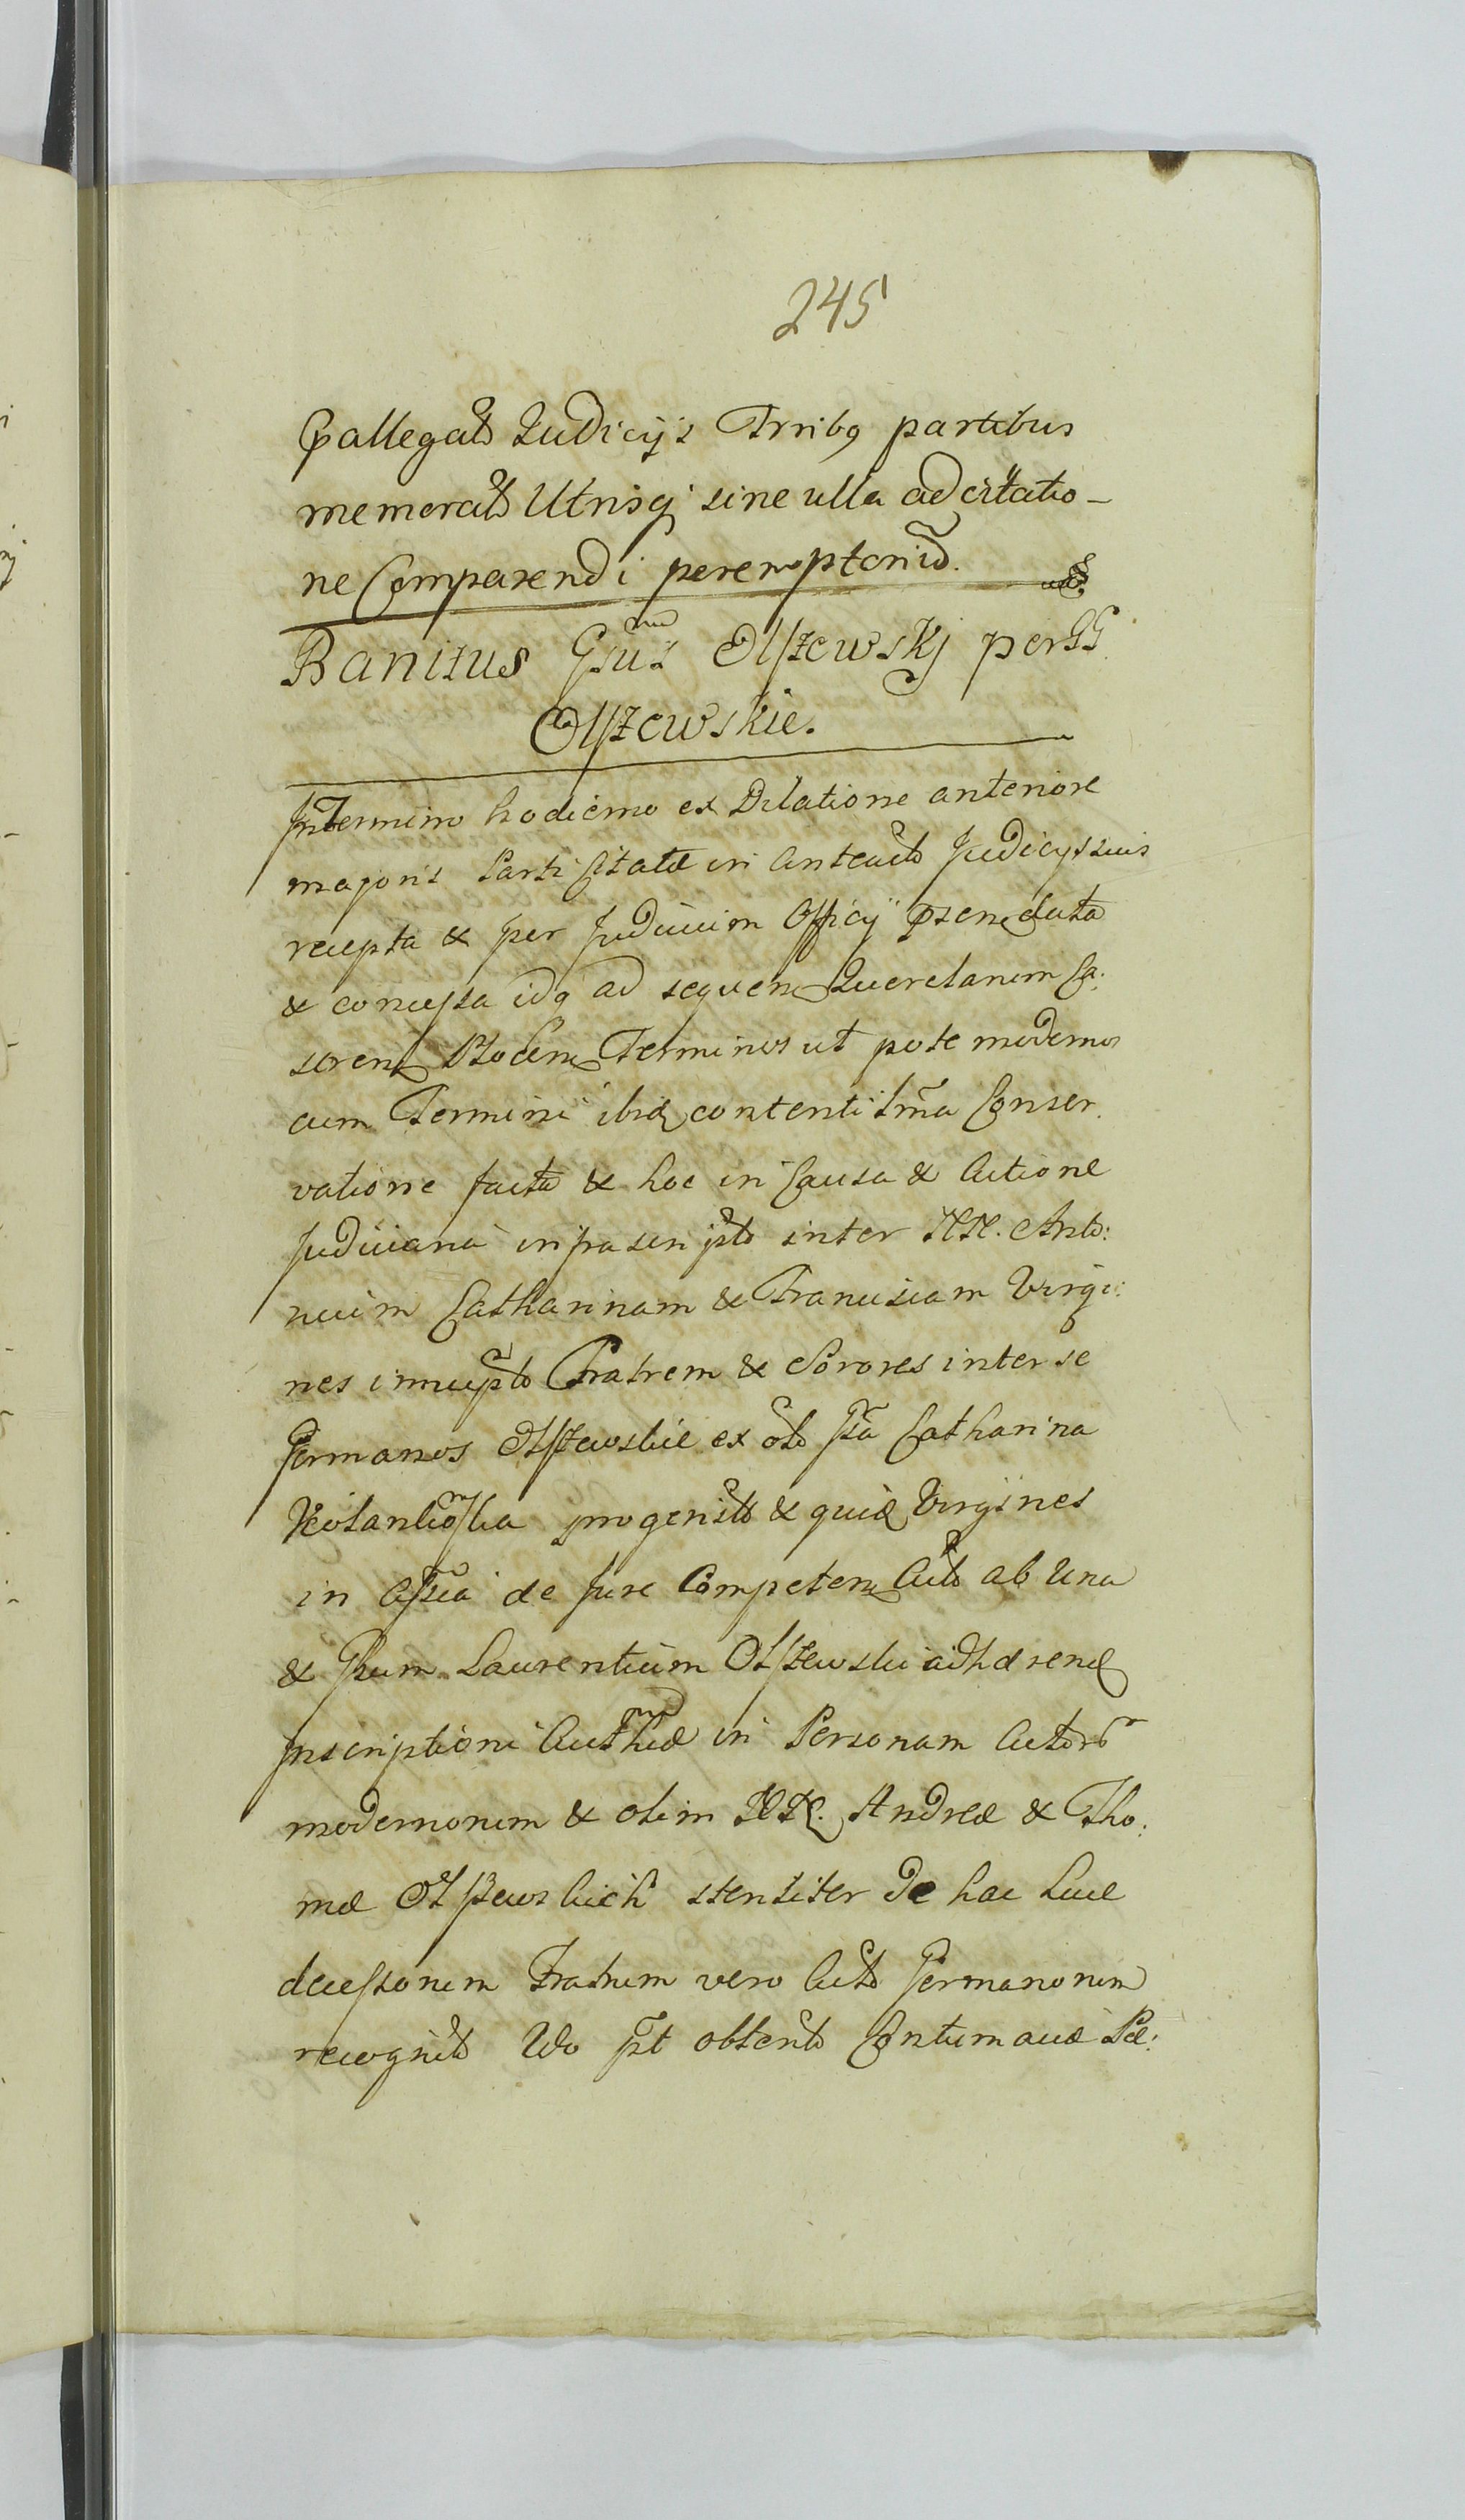 245
Pallegato Judicijs Trnibq partibus
memorato Utrisq sine ulla ad citatio-
ne Comparendi peremptorio.
Banitus Gsus Olszewskj per GG
Olszewskie.
In Termino hodierno ex Dilatione anteriore
majoris Parti Citatæ in Anteacto Judicijs suis
recepta & per Judicium Officij data
& concessa idq ad sequen Querelarum Ca:
seren Terminos ut pote modernos
cum Termini ibid contenti Conser
vatione facta & hoc in Causa & Actione
Judiciaria infrascripto inter Anto:
nium Catharinam & Franciscam Virgi:
nes innupto Fratrem & Sorores inter se
Germanos Olszewskie ex olo Catharina
progenito & quid Virgines
in de Jure Competen Acto ab Una
& Gsum Laurentium Olszewski adhæren
Inscriptioni in Personam Actoro
modernorum & olim Andreæ & Tho:
mæ Olszewskich steriliter de hac Luce
decessorum Fratrum vero Acto Germanorum
recognito Uo pt obtento Contumaciæ Pæ: